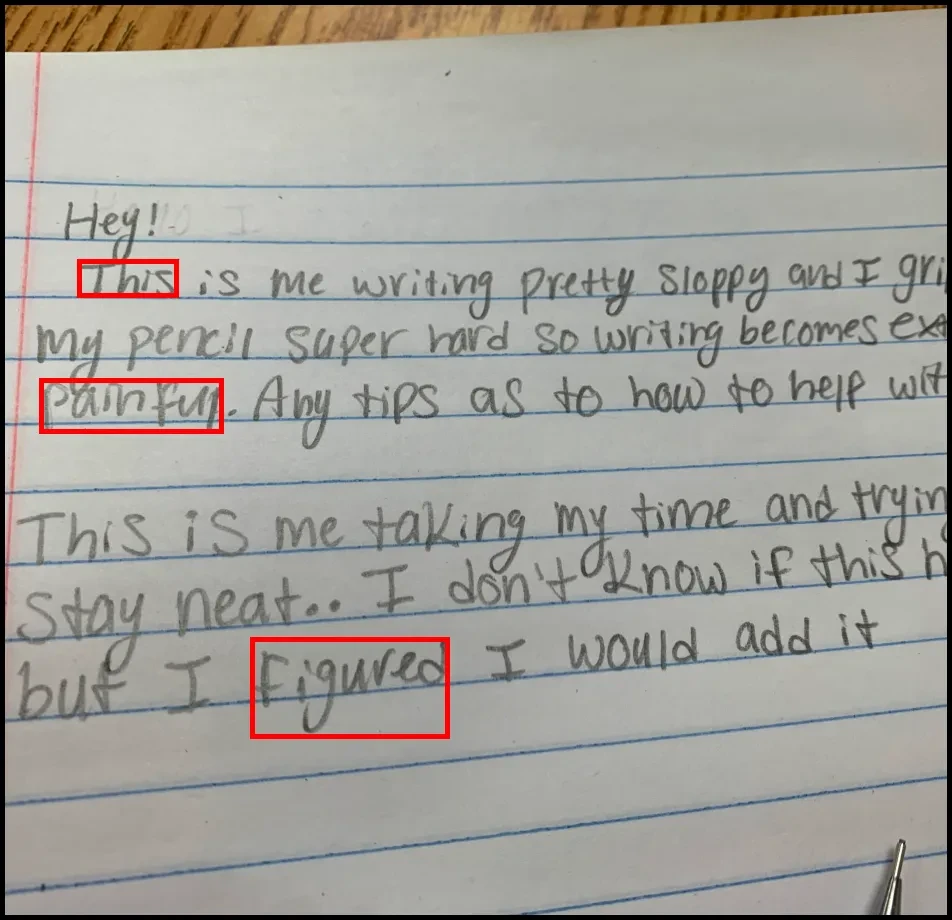 Hey!
This is me writing pretty sloppy and I gri
my pencil super hard so writing becomes exe
painful. Any tips as to how to help wit
This is me taking my time and tryin
stay neat.. I don't know if this h
but I figured I would add it